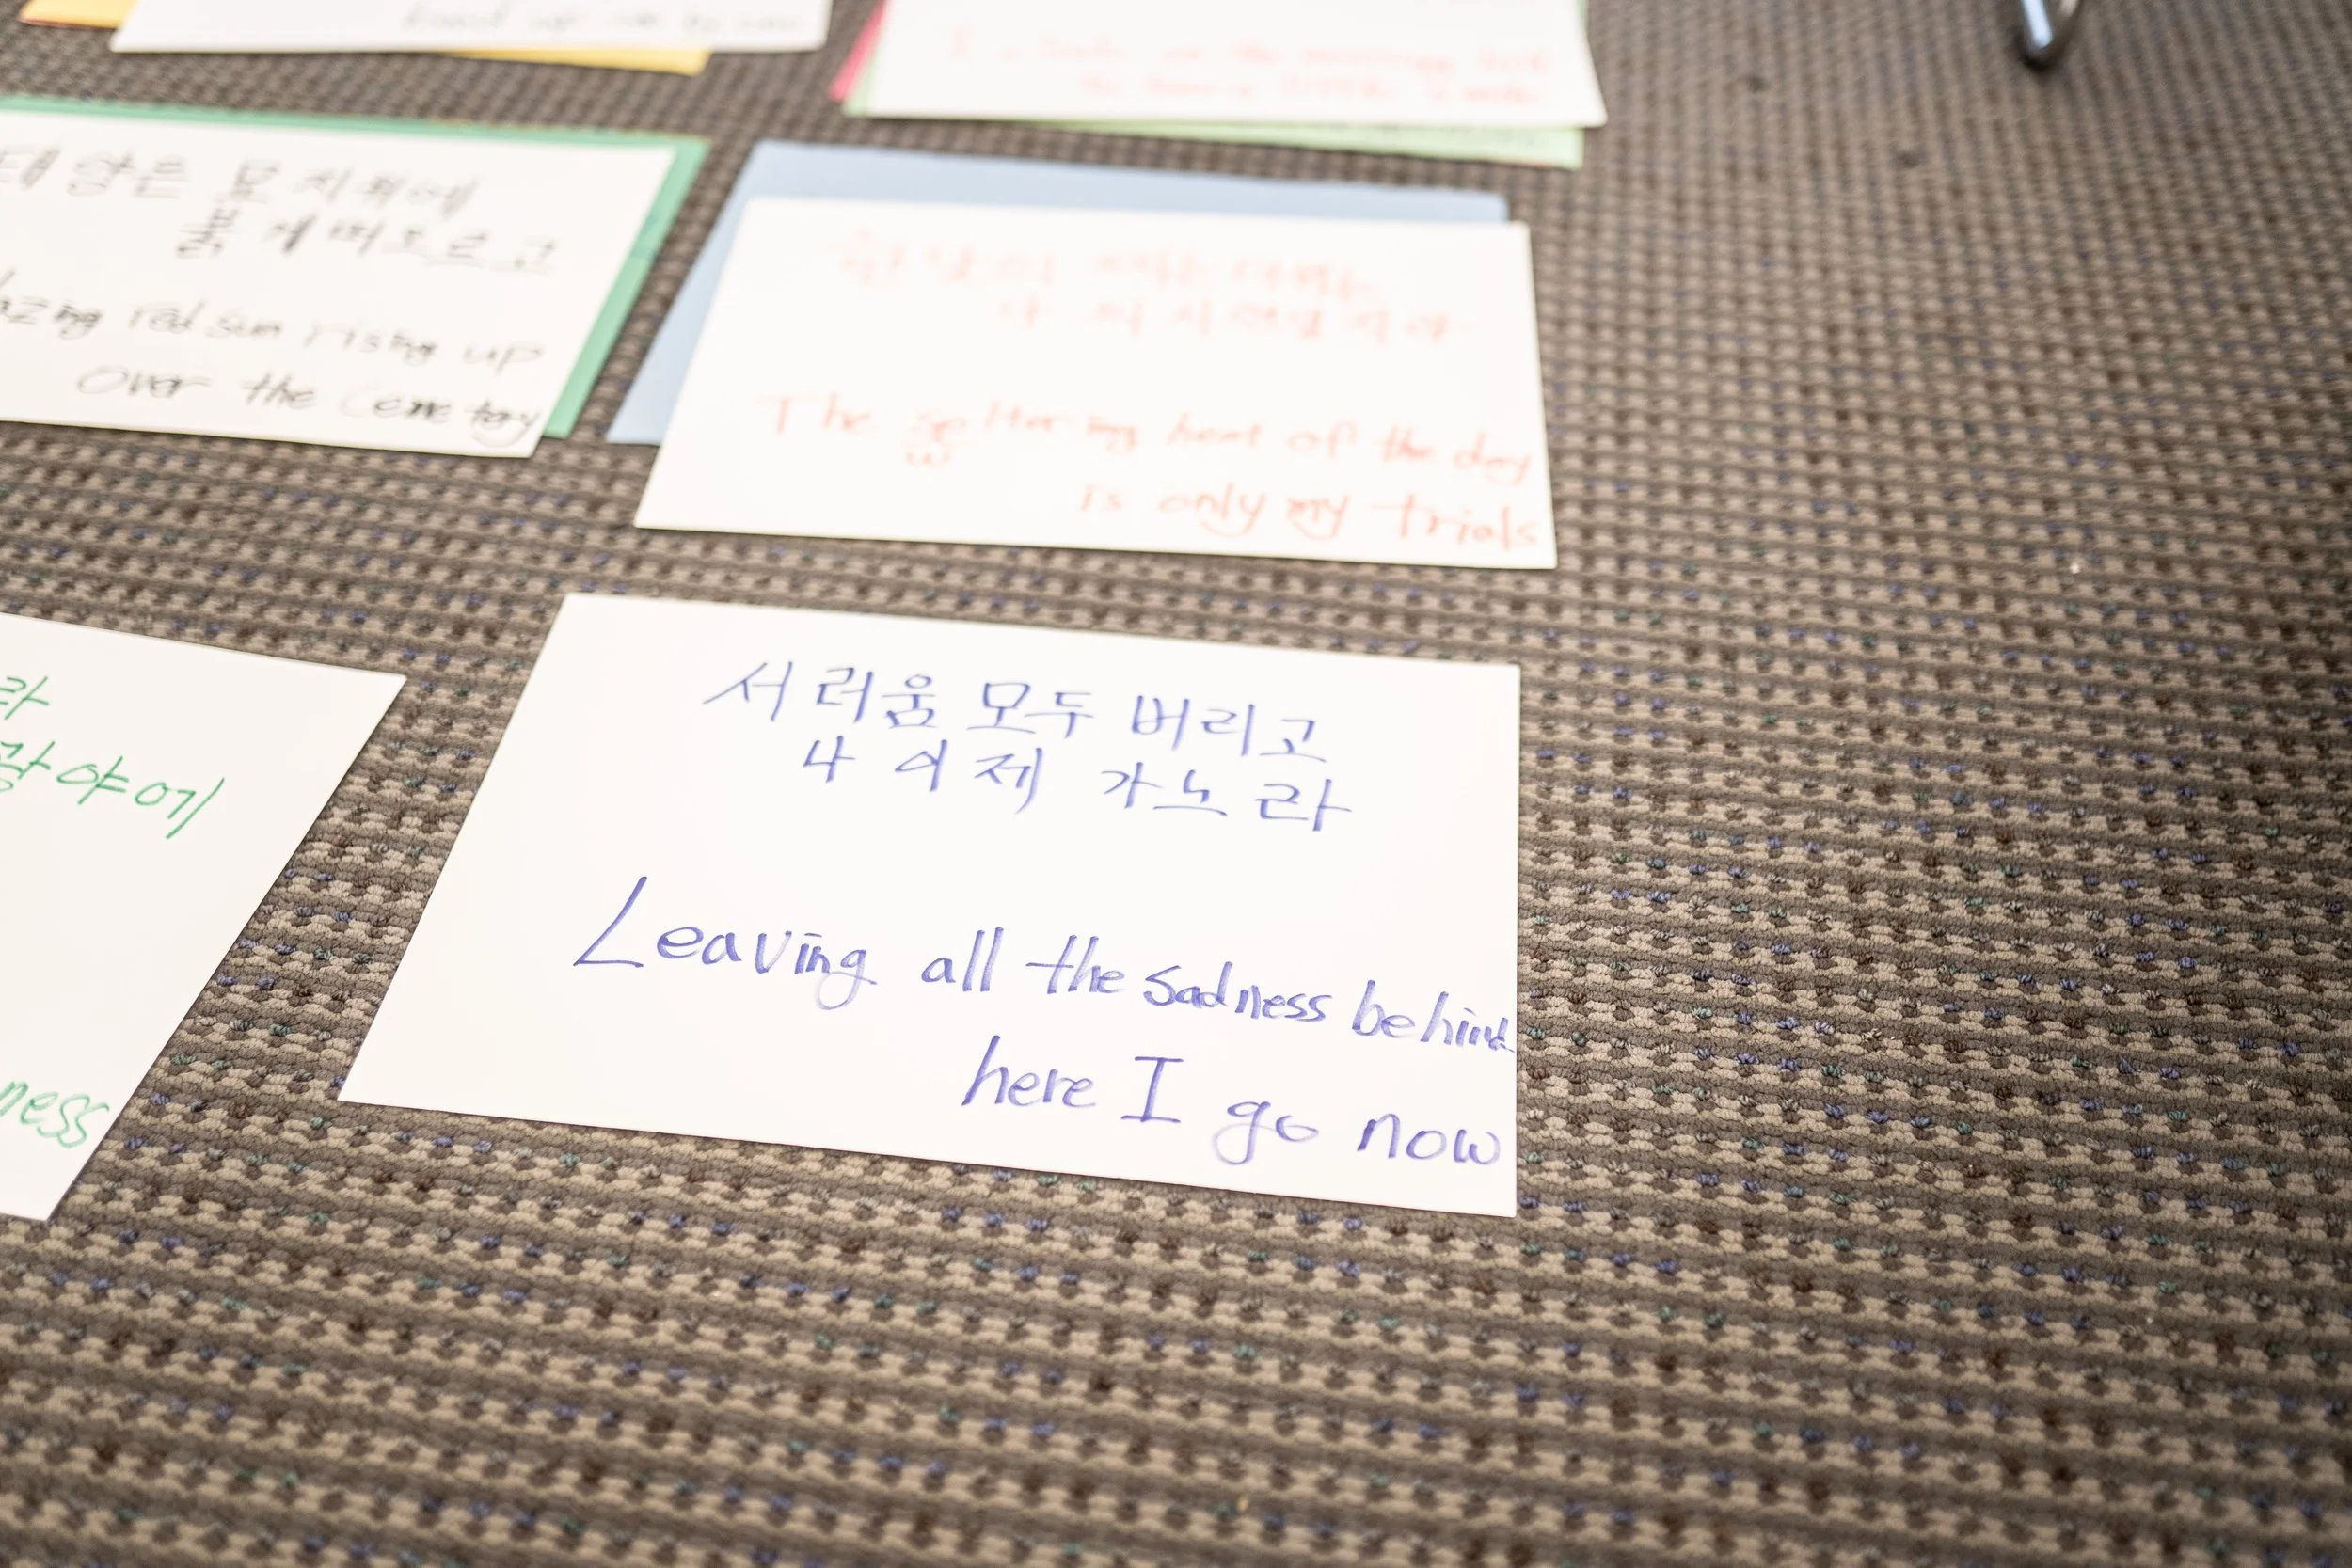 태양은 묘지위에
붉게 떠오르고
azing red sun rising up
over the Cemetery
한낮의 찌는 더위는
나의 시련일지라
The seltering heat of the day
w
is only my trials
라
광야에
ness
서러움 모두 버리고
나 이제 가노라
Leaving all the sadness behind
here I go now